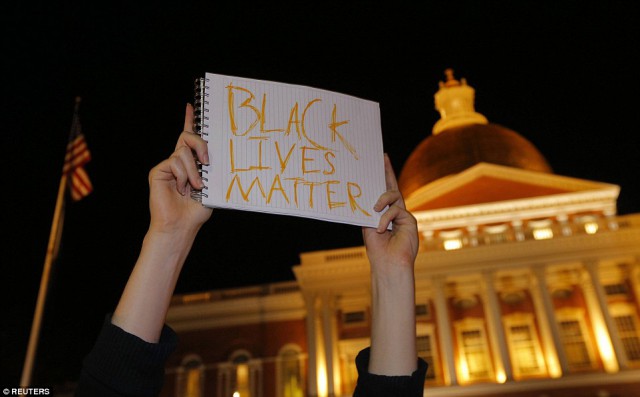 BLACK
LIVES
MATTER
© REUTERS